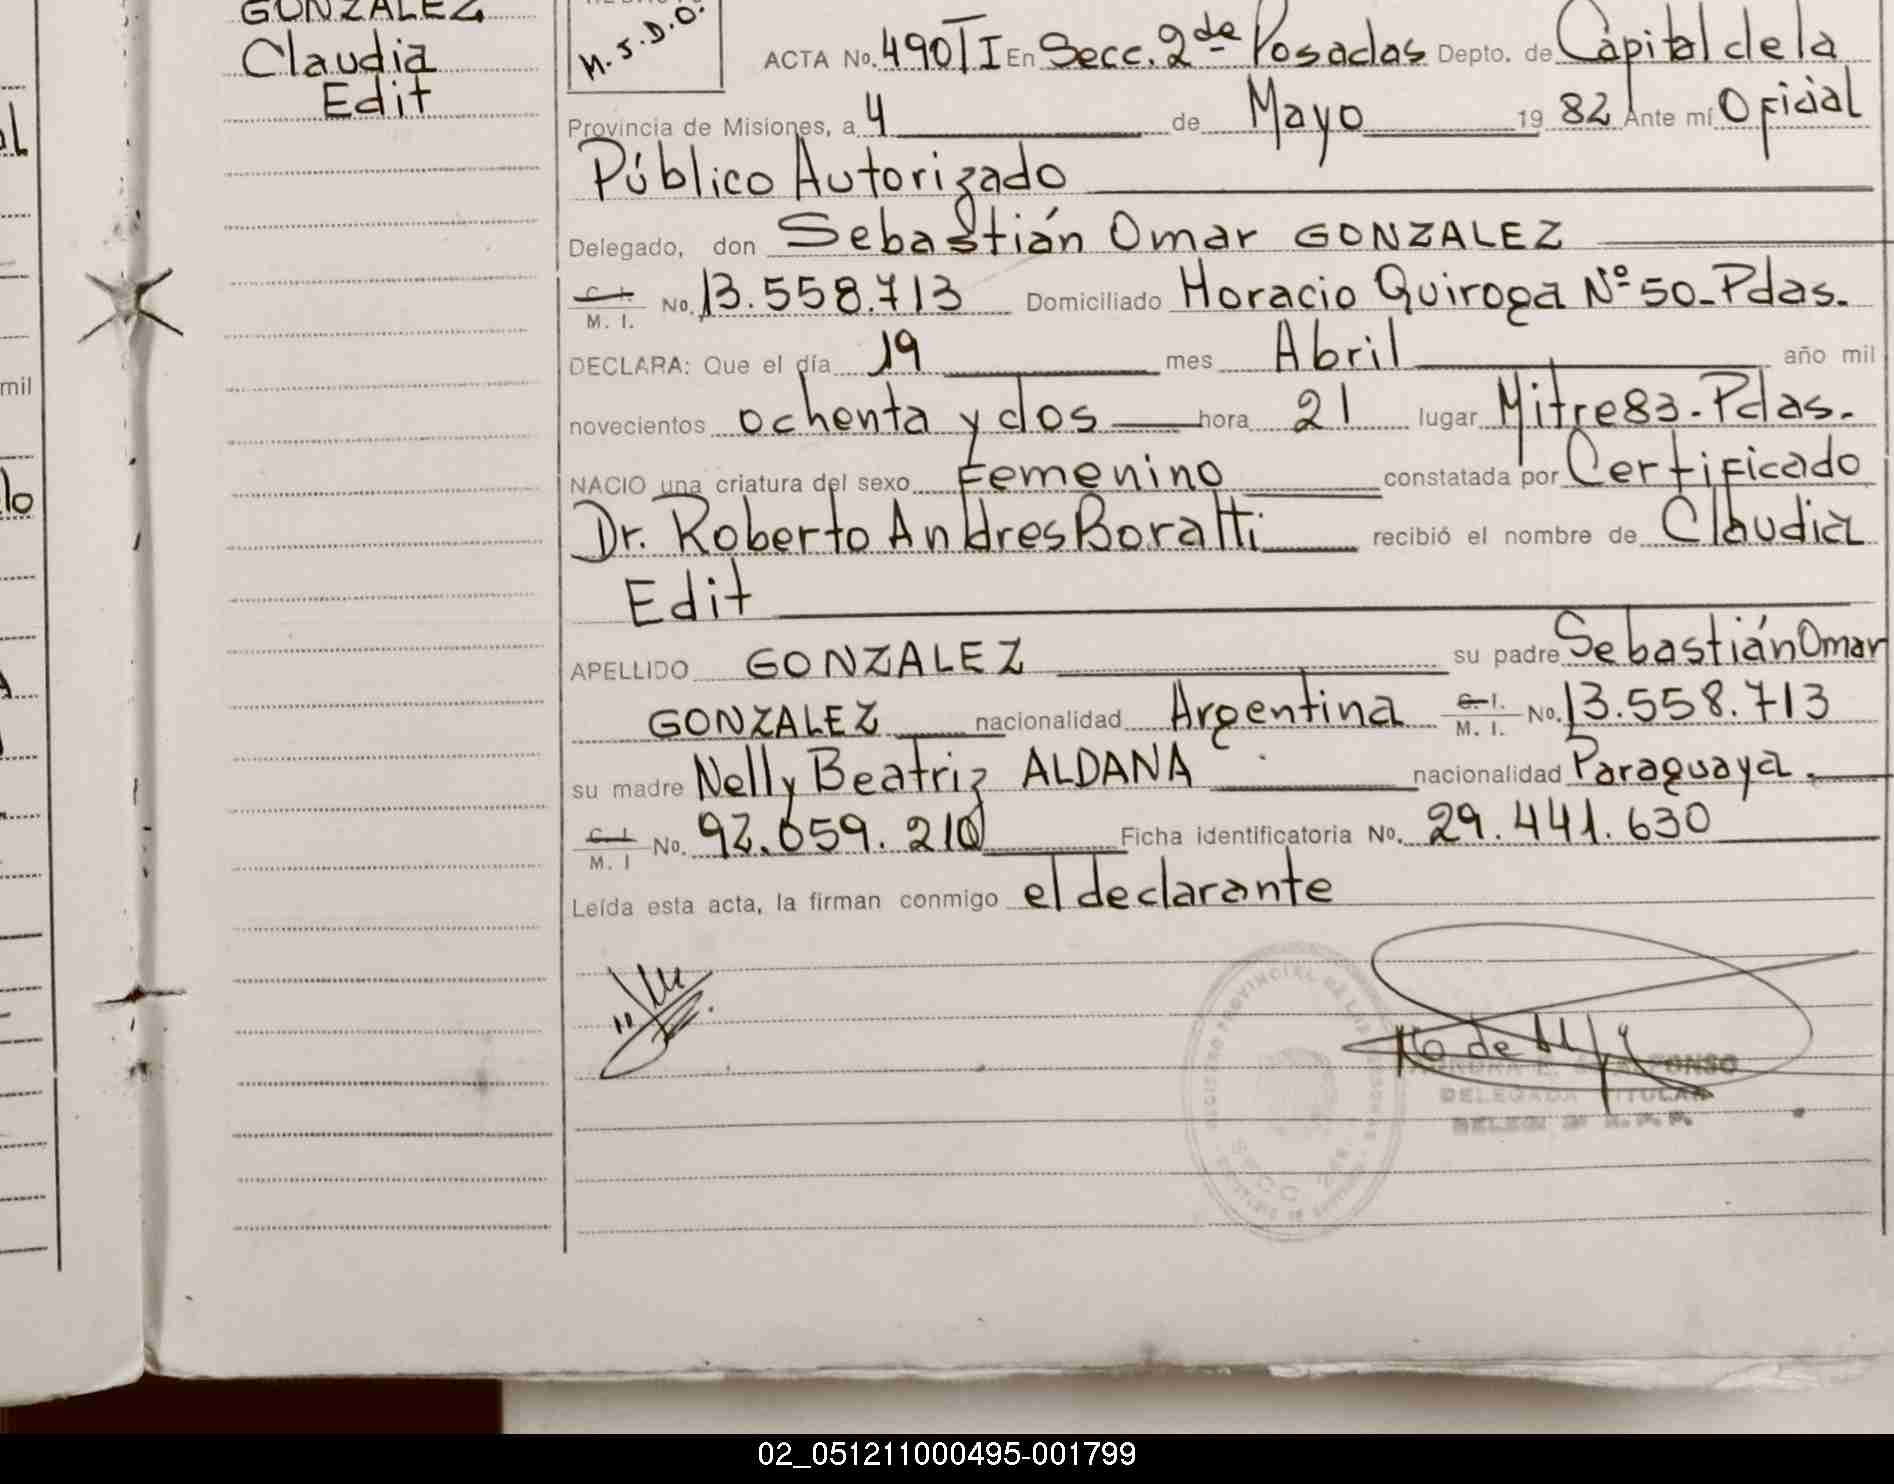 GONZALEZ
Claudia
Edit
M.J.D.O.
ACTA No. 490 T I En Secc. 2da Posadas Depto. de Capital de la
Provincia de Misiones, a 4 de Mayo 19 82 Ante mí Oficial
Público Autorizado
Delegado, don Sebastián Omar GONZALEZ
C. I. / M. I. No. 13.558.713 Domiciliado Horacio Quiroga Nº 50-Pdas.
DECLARA: Que el día 19 mes Abril año mil
novecientos ochenta y dos hora 21 lugar Mitre 83-Pdas.
NACIO una criatura del sexo Femenino constatada por Certificado
Dr. Roberto Andres Boratti recibió el nombre de Claudia
Edit
APELLIDO GONZALEZ su padre Sebastián Omar
GONZALEZ nacionalidad Argentina C. I. / M. I. No. 13.558.713
su madre Nelly Beatriz ALDANA nacionalidad Paraguaya.
C. I. / M. I No. 92.059.210 Ficha identificatoria No. 29.441.630
Leída esta acta, la firman conmigo el declarante
REGISTRO PROVINCIAL DE LAS PERSONAS
SECC. 2da
DELEGADA TITULAR
mil
lo
02_051211000495-001799